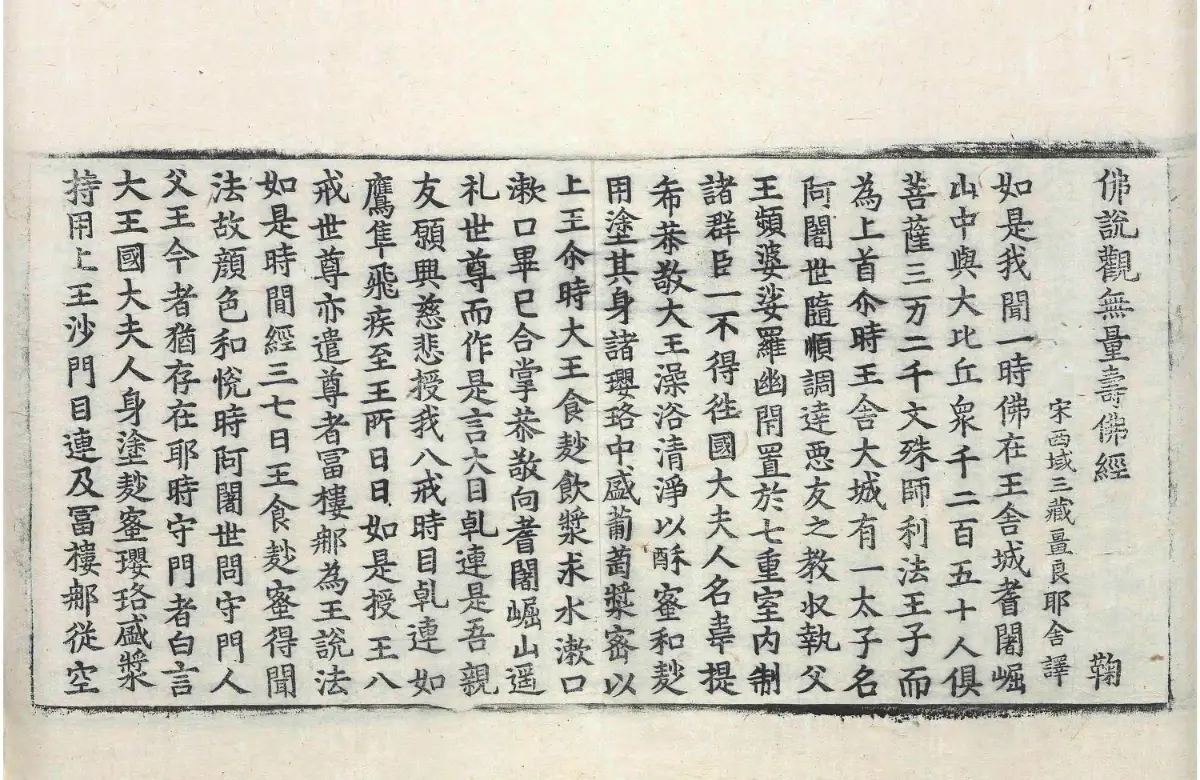 佛說觀無量壽佛經 鞠
宋西域三藏畺良耶舍譯
如是我聞一時佛在王舍城耆闍崛
山中與大比丘衆千二百五十人俱
菩薩三万二千文殊師利法王子而
為上首尒時王舍大城有一太子名
阿闍世隨順調達惡友之教収執父
王頻婆娑羅幽閇置於七重室内制
諸群臣一不得徃國大夫人名韋提
希恭敬大王澡浴清淨以酥蜜和麨
用塗其身諸瓔珞中盛葡萄漿密以
上王尒時大王食麨飲漿求水漱口
漱口畢已合掌恭敬向耆闍崛山遥
礼世尊而作是言大目乹連是吾親
友願興慈悲授我八戒時目乹連如
鷹隼飛疾至王所日日如是授王八
戒世尊亦遣尊者冨樓那為王說法
如是時間經三七日王食麨蜜得聞
法故顔色和恱時阿闍世問守門人
父王今者猶存在耶時守門者白言
大王國大夫人身塗麨蜜瓔珞盛漿
持用上王沙門目連及冨樓那從空